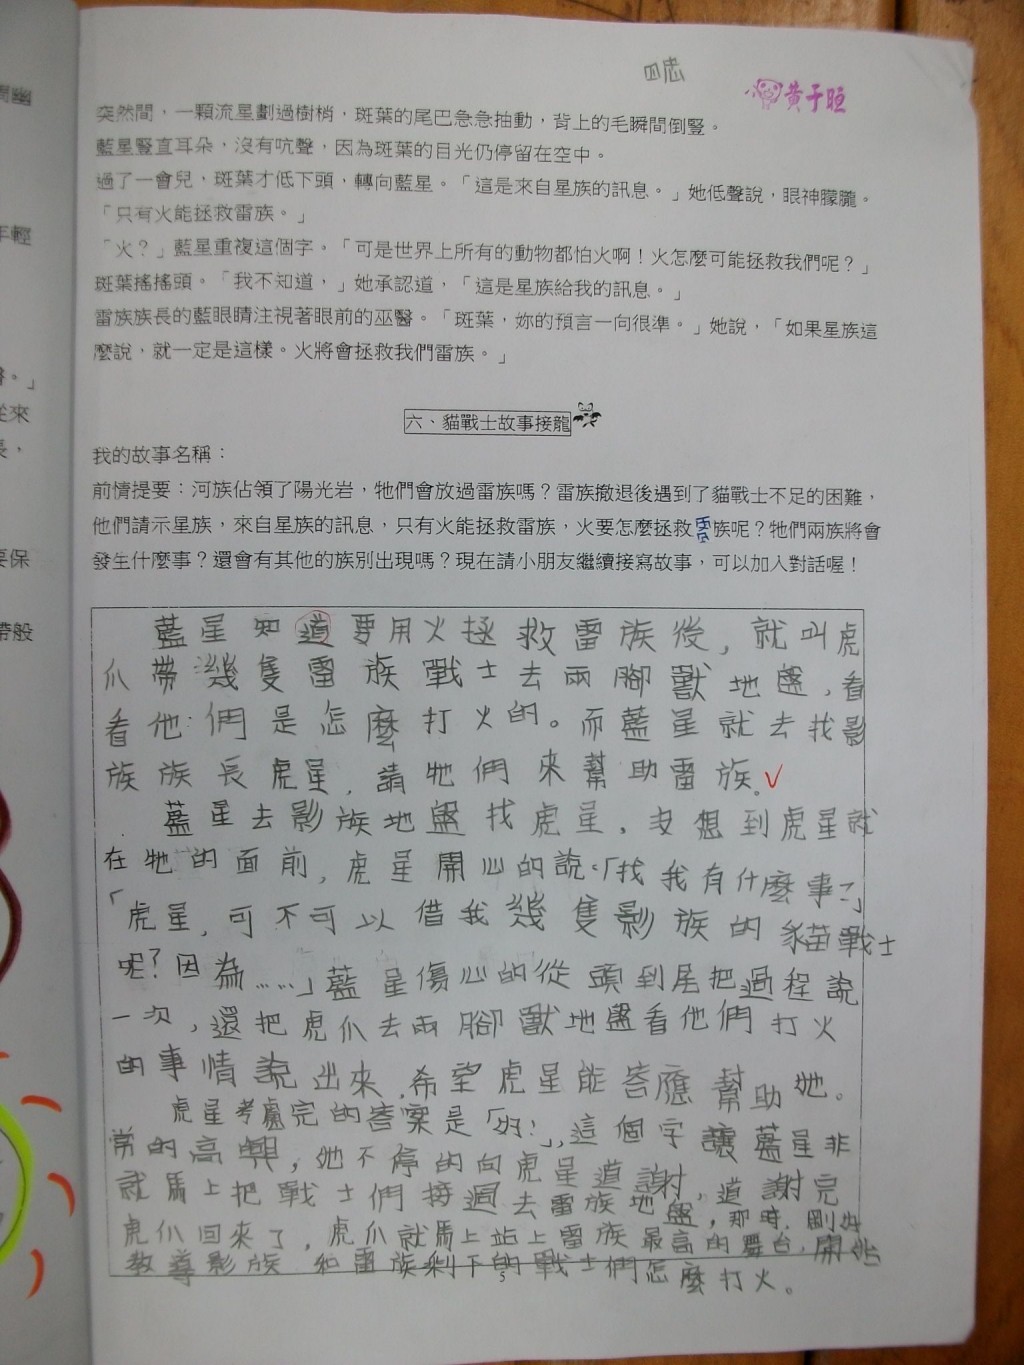 四忠
黃于恒
突然間，一顆流星劃過樹梢，斑葉的尾巴急急抽動，背上的毛瞬間倒豎。
藍星豎直耳朵，沒有吭聲，因為斑葉的目光仍停留在空中。
過了一會兒，斑葉才低下頭，轉向藍星。「這是來自星族的訊息。」她低聲說，眼神朦朧。
「只有火能拯救雷族。」
「火？」藍星重複這個字。「可是世界上所有的動物都怕火啊！火怎麼可能拯救我們呢？」
斑葉搖搖頭。「我不知道，」她承認道，「這是星族給我的訊息。」
雷族族長的藍眼睛注視著眼前的巫醫。「斑葉，妳的預言一向很準。」她說，「如果星族這
麼說，就一定是這樣。火將會拯救我們雷族。」
六、貓戰士故事接龍
我的故事名稱：
前情提要：河族佔領了陽光岩，牠們會放過雷族嗎？雷族撤退後遇到了貓戰士不足的困難，
他們請示星族，來自星族的訊息，只有火能拯救雷族，火要怎麼拯救雷族呢？牠們兩族將會
發生什麼事？還會有其他的族別出現嗎？現在請小朋友繼續接寫故事，可以加入對話喔！
藍星知道要用火拯救雷族後，就叫虎
爪帶幾隻雷族戰士去兩腳獸地盤，看
看他們是怎麼打火的。而藍星就去找影
族族長虎星，請牠們來幫助雷族。
藍星去影族地盤找虎星，沒想到虎星就
在牠的面前，虎星開心的說：「找我有什麼事？」
「虎星，可不可以借我幾隻影族的貓戰士
呢？因為……」藍星傷心的從頭到尾把過程說
一次，還把虎爪去兩腳獸地盤看他們打火
的事情說出來，希望虎星能答應幫助她。
虎星考慮完的答案是「好！」，這個字讓藍星非
常的高興，她不停的向虎星道謝，道謝完
就馬上把戰士們接過去雷族地盤，那時，剛好
虎爪回來了，虎爪就馬上站上雷族最高的舞台，開始
教導影族和雷族剩下的戰士們怎麼打火。
5